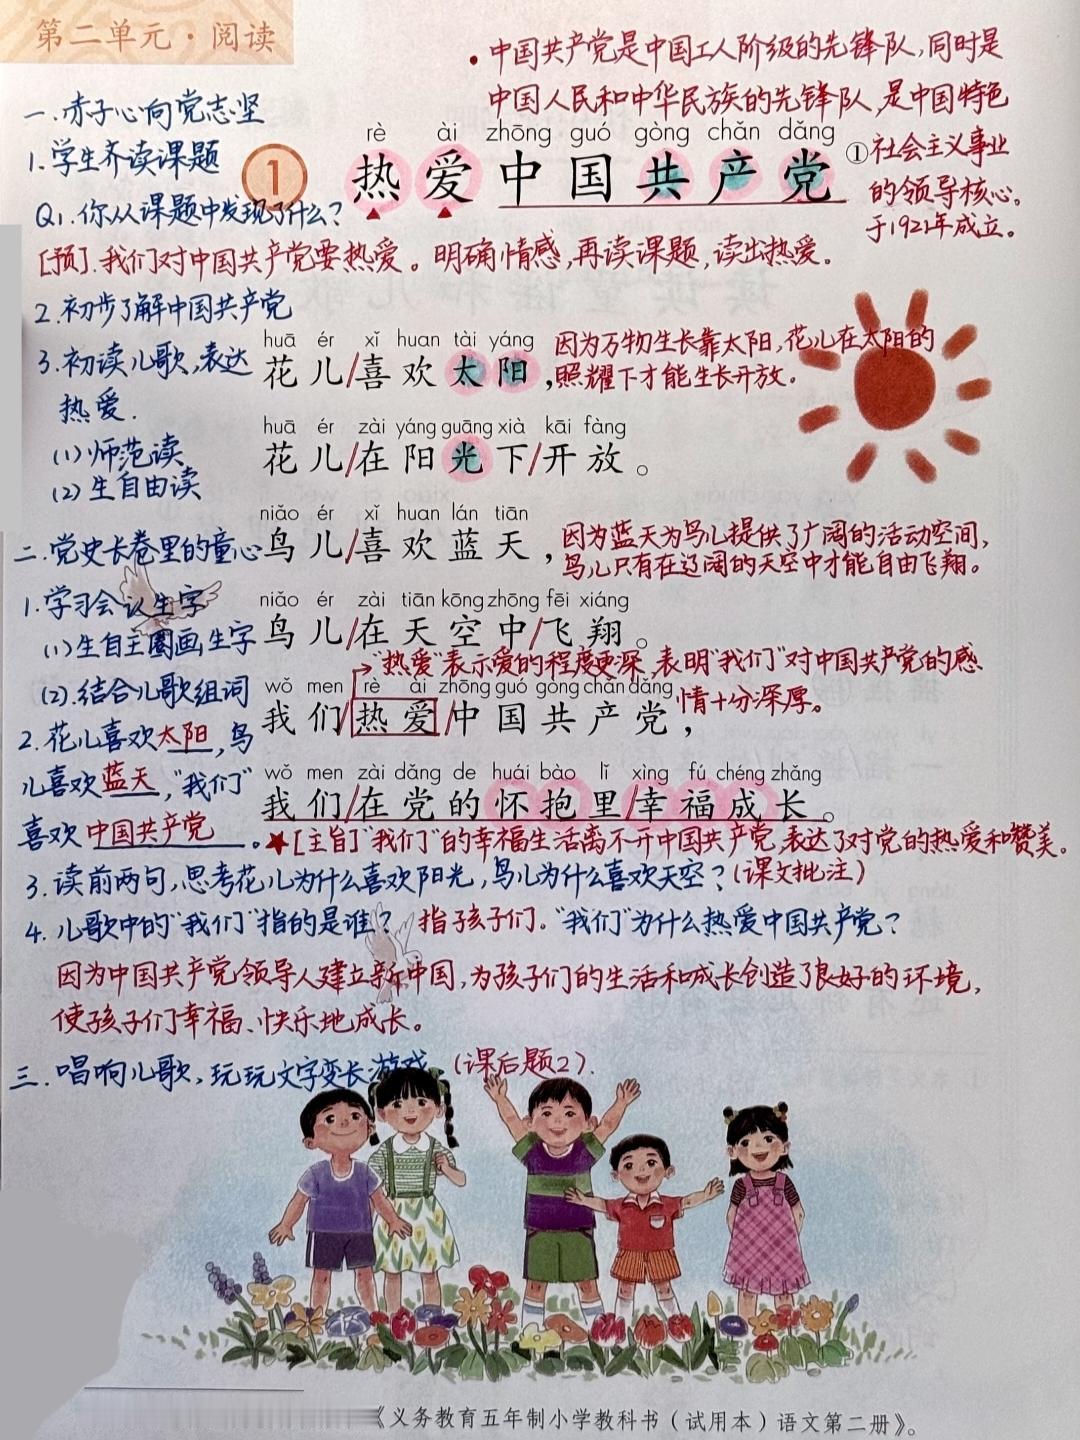 第二单元·阅读
•中国共产党是中国工人阶级的先锋队,同时是
中国人民和中华民族的先锋队,是中国特色
社会主义事业
的领导核心。
于1921年成立。
一.赤子心向党志坚
1.学生齐读课题
rè ài zhōng guó gòng chǎn dǎng
1 热爱中国共产党①
Q1.你从课题中发现了什么?
[预].我们对中国共产党要热爱。明确情感,再读课题,读出热爱。
2.初步了解中国共产党
3.初读儿歌,表达
热爱.
(1)师范读
(2)生自由读
huā ér xǐ huan tài yáng
花儿/喜欢太阳,
因为万物生长靠太阳,花儿在太阳的
照耀下才能生长开放。
huā ér zài yáng guāng xià kāi fàng
花儿/在阳光下/开放。
niǎo ér xǐ huan lán tiān
鸟儿/喜欢蓝天,
因为蓝天为鸟儿提供了广阔的活动空间,
鸟儿只有在辽阔的天空中才能自由飞翔。
niǎo ér zài tiān kōng zhōng fēi xiáng
鸟儿/在天空中/飞翔。
"热爱"表示爱的程度更深,表明"我们"对中国共产党的感
情十分深厚。
wǒ men rè ài zhōng guó gòng chǎn dǎng
我们/热爱/中国共产党,
wǒ men zài dǎng de huái bào lǐ xìng fú chéng zhǎng
我们/在党的怀抱里/幸福成长。
二.党史长卷里的童心
1.学习会认生字
(1)生自主圈画生字
(2).结合儿歌组词
2.花儿喜欢太阳,鸟
儿喜欢蓝天,"我们"
喜欢中国共产党。
★[主旨]"我们"的幸福生活离不开中国共产党,表达了对党的热爱和赞美。
3.读前两句,思考花儿为什么喜欢阳光,鸟儿为什么喜欢天空?(课文批注)
4.儿歌中的"我们"指的是谁? 指孩子们."我们"为什么热爱中国共产党?
因为中国共产党领导人建立新中国,为孩子们的生活和成长创造了良好的环境,
使孩子们幸福、快乐地成长。
三.唱响儿歌,玩玩文字变长游戏 (课后题2).
《义务教育五年制小学教科书(试用本)语文第二册》。